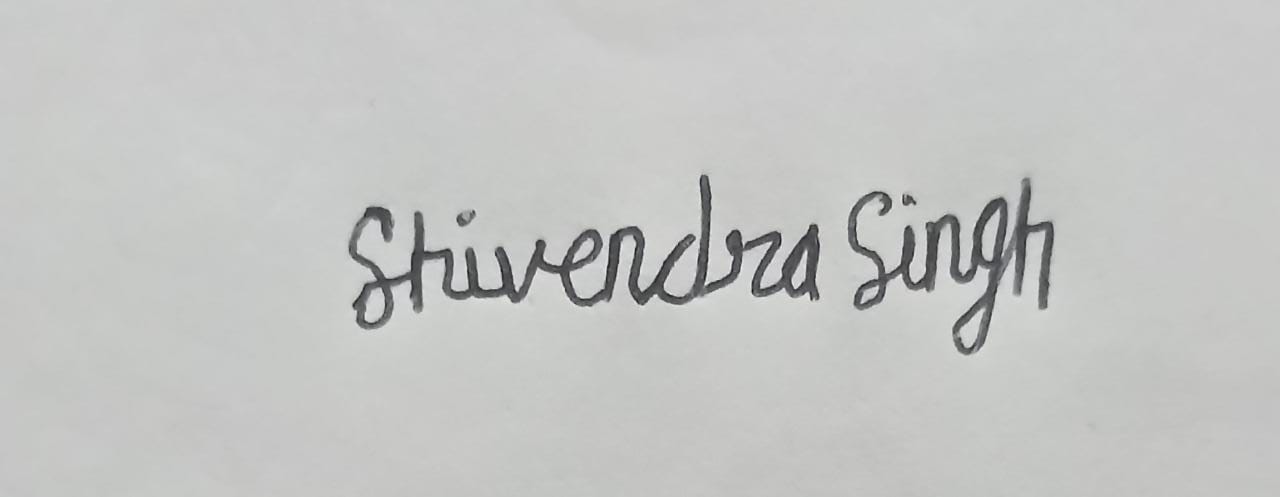 Shivendra Singh